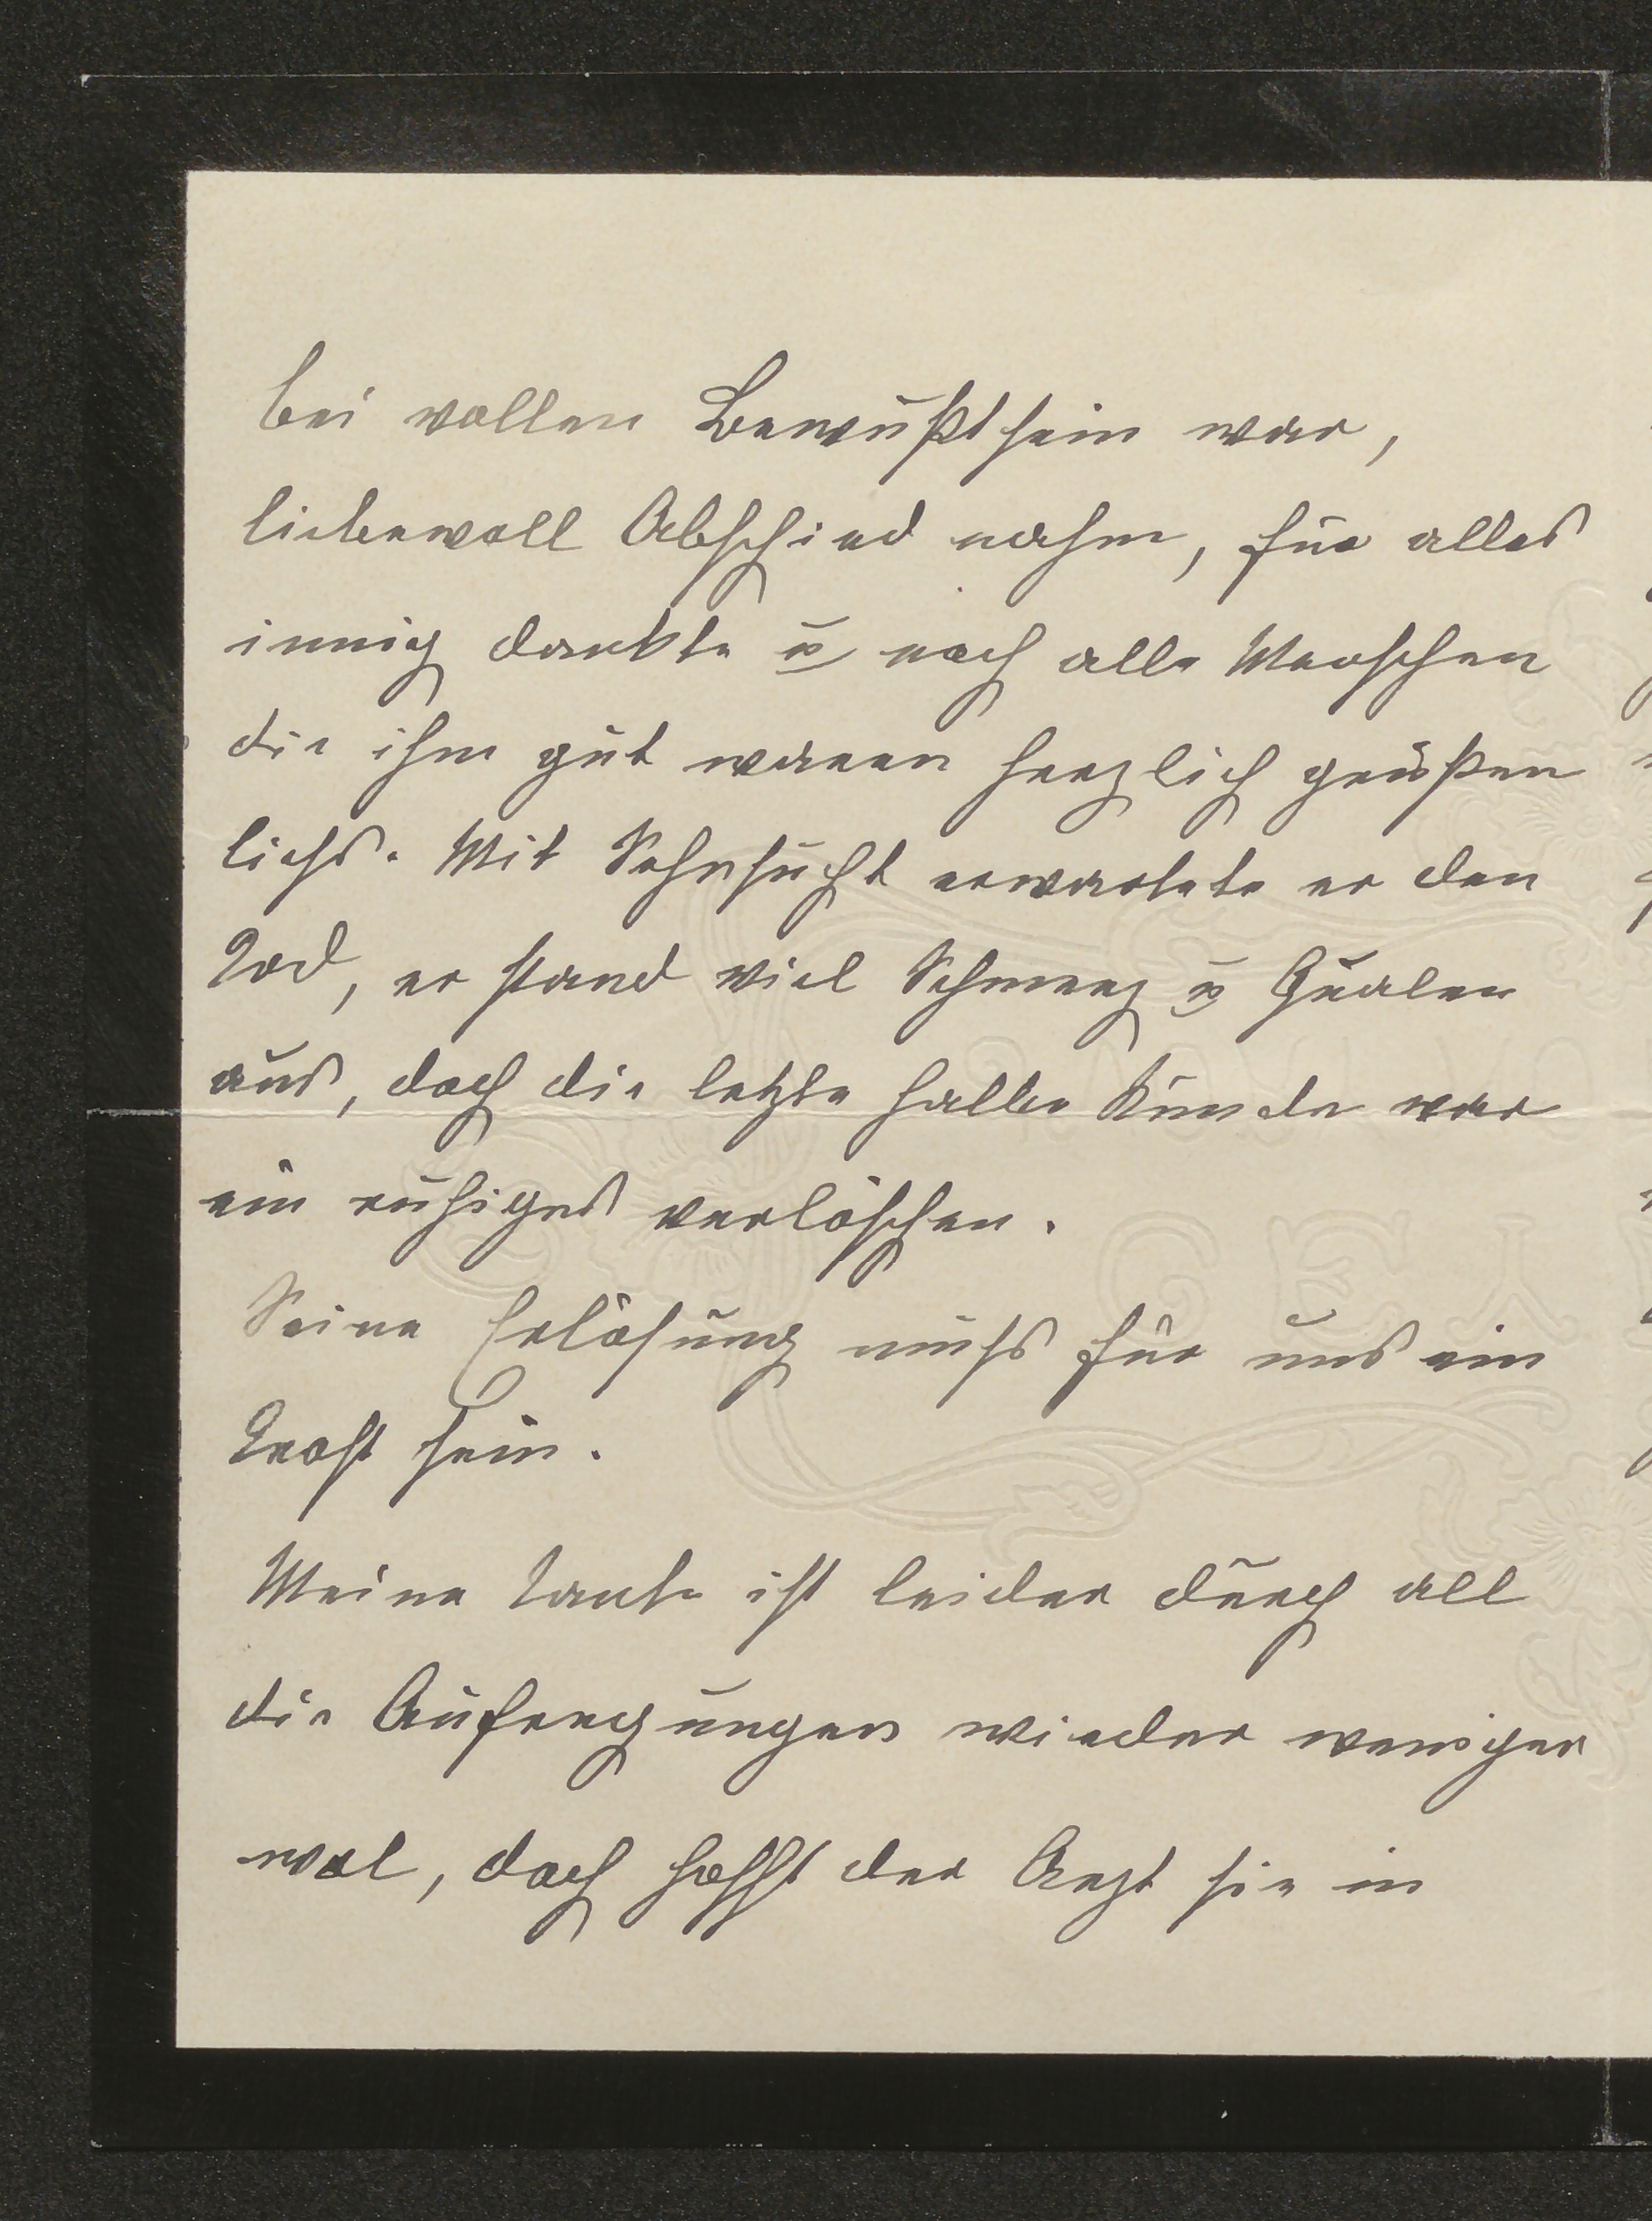 bei vollem Bewußtsein war,
liebevoll Abschied nahm, für alles
innig dankte u noch alle Menschen
die ihm gut waren herzlich grüßen
liess. Mit Sehnsucht erwartete er den
Tod, er stand viel Schmerz u Qualen
aus, doch die letzte halbe Stunde war
ein ruhiges verlöschen.
Seine Erlösung muss für uns ein
Trost sein.
Meine Tante ist leider durch all
die Aufregungen wieder weniger
wol, doch hofft der Arzt sie in